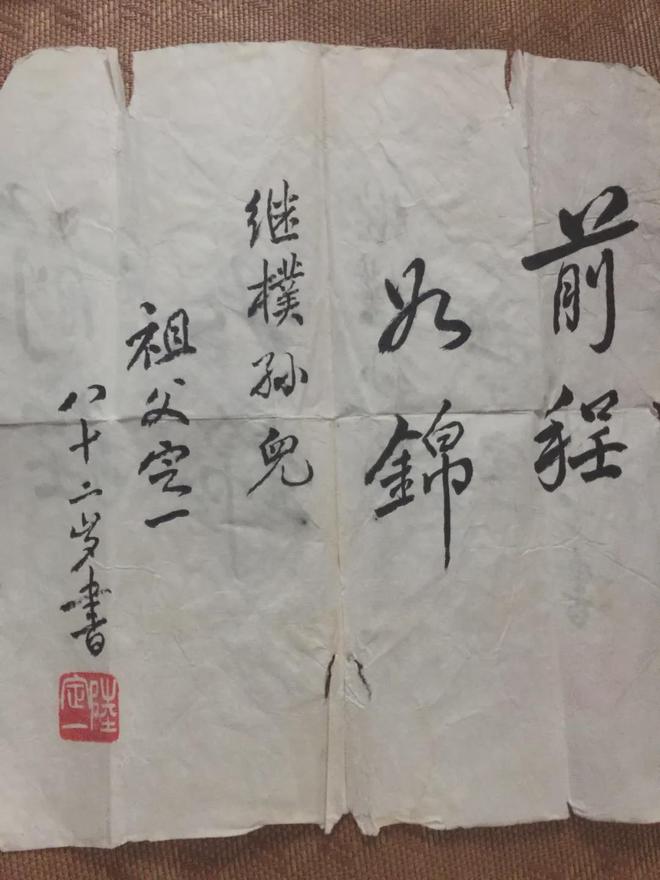 前程
如錦
继樸孙兒
祖父定一
八十二岁書
陸定一